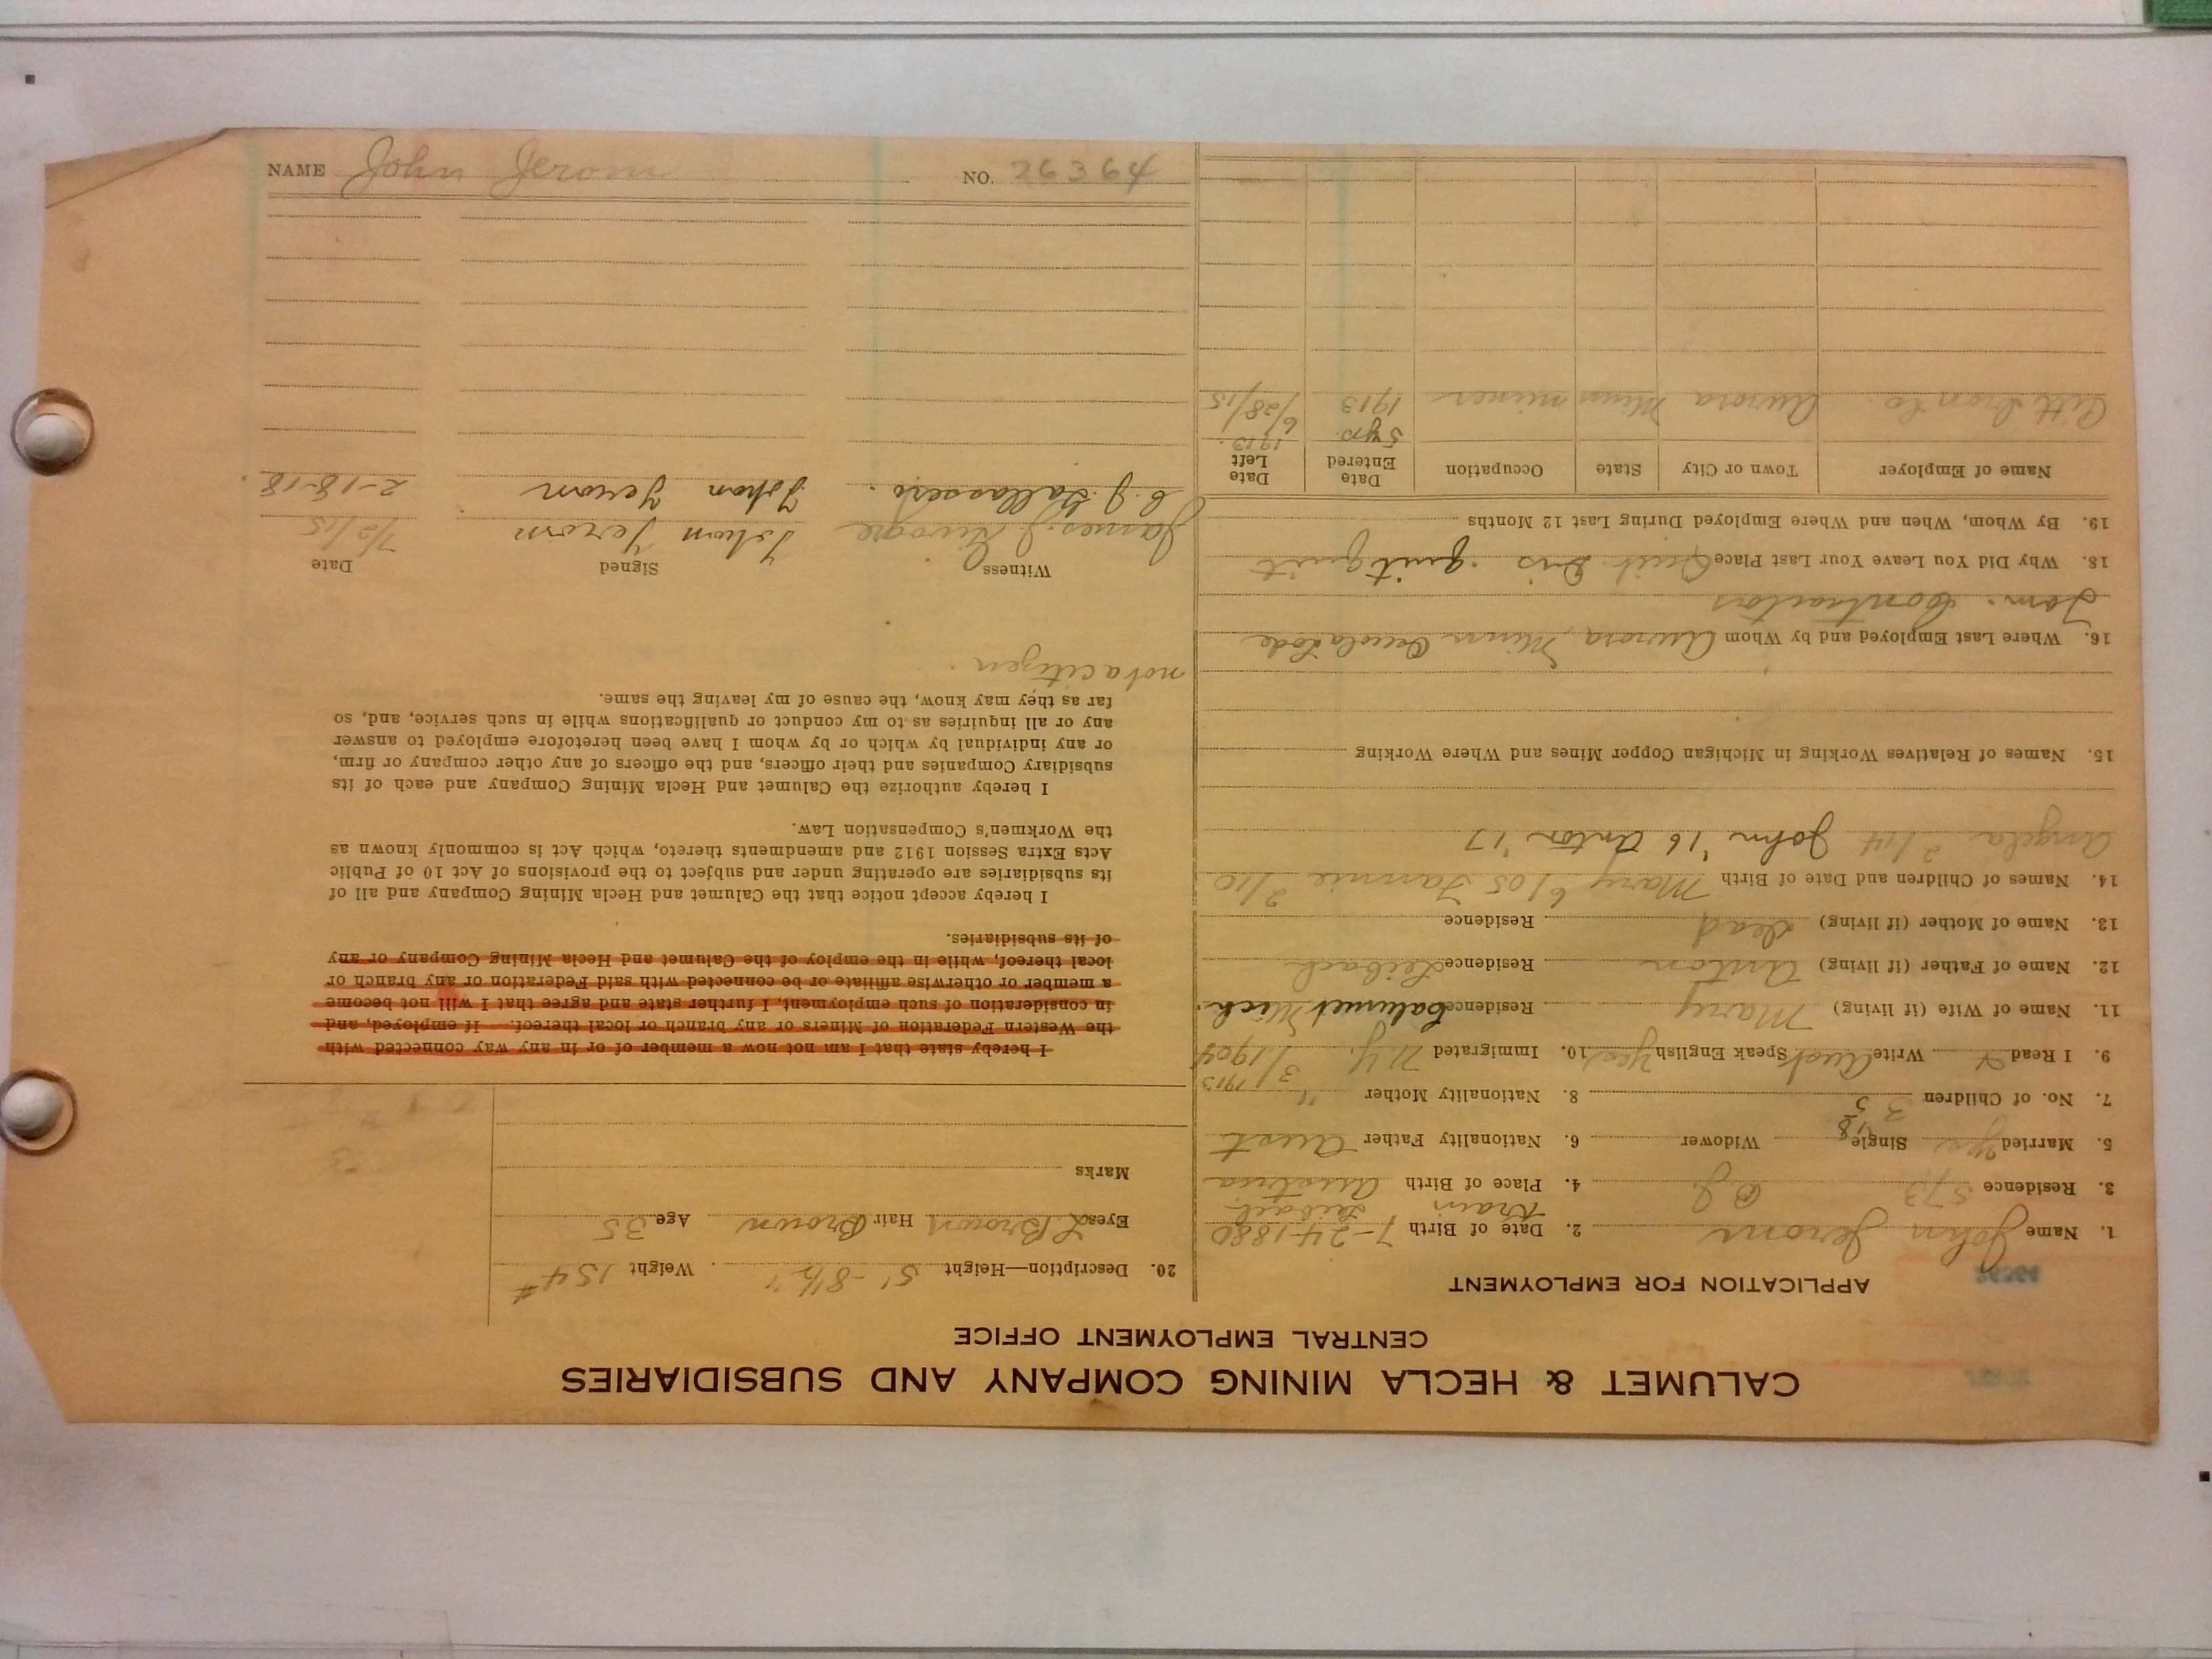 CALUMET & HECLA MINING COMPANY AND SUBSIDIARIES
CENTRAL EMPLOYMENT OFFICE
APPLICATION FOR EMPLOYMENT
1. Name John Jerom 2. Date of Birth 7-24-1880
Krain
3. Residence 573 4. Place of Birth Austria
5. Married Yes Single Widower 6. Nationality Father Aust
'18
7. No. of Children 3 5 8. Nationality Mother "
1913
9. I Read Write Aust Speak English Yes 10. Immigrated N.Y. 3/1904
11. Name of Wife (if living) Mary Residence Calumet Mich.
12. Name of Father (if living) Anton Residence Leibach
13. Name of Mother (if living) Dead Residence
14. Names of Children and Date of Birth Mary 6/05 Fannie 2/10
Angela 2/14 John '16 Anton '17
15. Names of Relatives Working in Michigan Copper Mines and Where Working
16. Where Last Employed and by Whom Aurora, Minn Osceola Lode
Tam. Contractors
18. Why Did You Leave Your Last Place Quit Dis quit quit
19. By Whom, When and Where Employed During Last 12 Months
Name of Employer Town or City State Occupation Date Entered Date Left
5 yrs. 1913.
Pitt Iron Co. Aurora Minn miner 1913 6/28/15
20. Description—Height 5'-8½" Weight 154#
Eyes L Brown Hair Brown Age 35
Marks
I hereby state that I am not now a member of or in any way connected with
the Western Federation of Miners or any branch or local thereof. If employed, and
in consideration of such employment, I further state and agree that I will not become
a member or otherwise affiliate or be connected with said Federation or any branch or
local thereof, while in the employ of the Calumet and Hecla Mining Company or any
of its subsidiaries.
I hereby accept notice that the Calumet and Hecla Mining Company and all of
its subsidiaries are operating under and subject to the provisions of Act 10 of Public
Acts Extra Session 1912 and amendments thereto, which Act is commonly known as
the Workmen's Compensation Law.
I hereby authorize the Calumet and Hecla Mining Company and each of its
subsidiary Companies and their officers, and the officers of any other company or firm,
or any individual by which or by whom I have been heretofore employed to answer
any or all inquiries as to my conduct or qualifications while in such service, and, so
far as they may know, the cause of my leaving the same.
not a citizen.
Witness Signed Date
James J Johan Jerom 7/2/15
C. J. Johan Jerom 2-18-18
NAME John Jerom NO. 26364